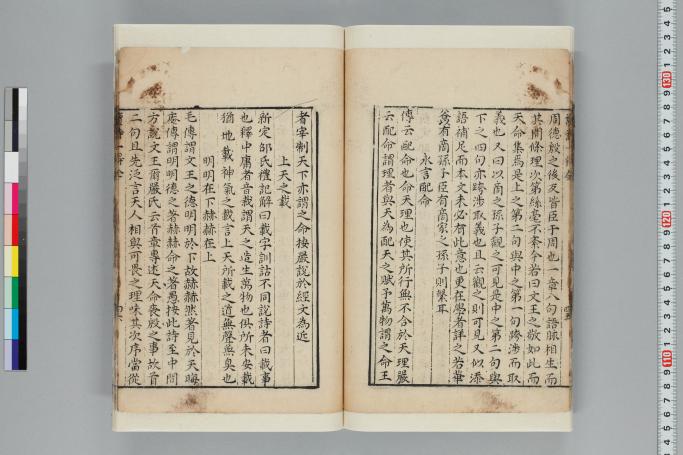 周德殷之後又皆臣于周也一章八句語脈相生而
其間條理次第絲毫不紊今若曰文王之敬如此而
天命集焉是上之第二句與中之第一句跨涉而取
義也又曰以商之孫子觀之可見是中之第二句與
下之四句亦跨涉取義也且云觀之則可見又似添
語補足而本文未必有此意也更在學者詳之若華
谷有商孫子臣有商家之孫子則槩耳
永言配命
傳云配命也命天理也使其所行無不合於天理嚴
云配命謂理者與天為配天之賦予萬物謂之命王
者宰制天下亦謂之命按嚴說於經文為近
上天之載
新定邵氏禮記解曰載字訓詁不同說詩者曰載事
也釋中庸者音栽謂天之造生萬物也俱所未安載
猶地載神氣之載言上天所載之道無聲無臭也
明明在下赫赫在上
毛傳謂文王之德明明於下故赫赫然著見於天晦
庵傳謂明明德之著赫赫命之著愚按此詩至中間
方說文王爾嚴氏云首章專述天命喪殷之事故首
二句且先泛言天人相與可畏之理味其次序當從